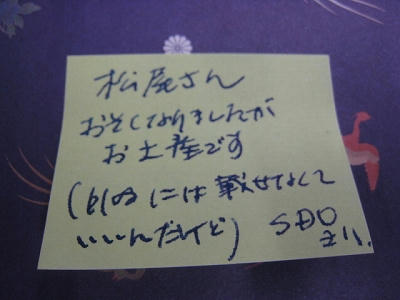 松尾さん
おそくなりましたが
お土産です
には載せなくて
いいんだけど)